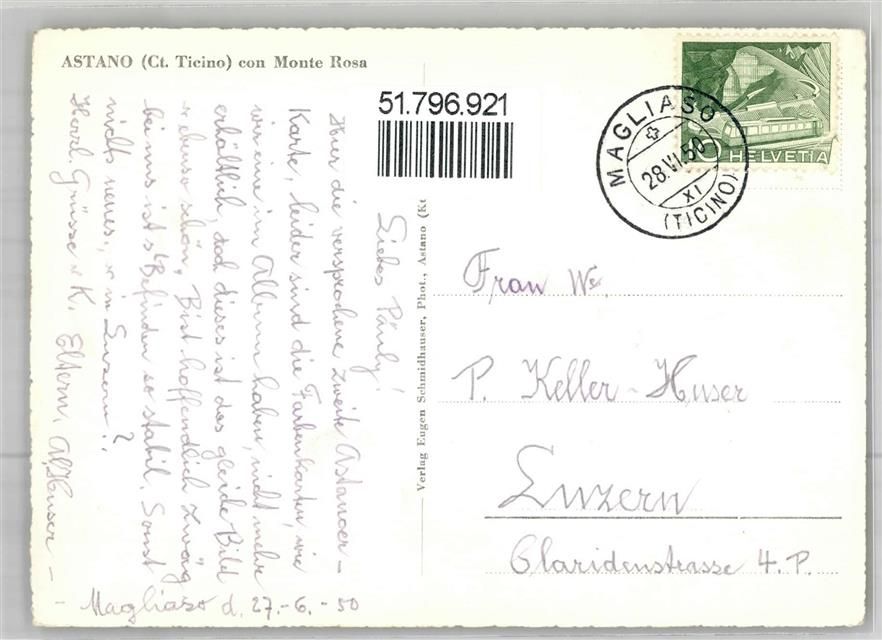 ASTANO (Ct. Ticino) con Monte Rosa
51.796.921
MAGLIASO
28.VI.50
XI
(TICINO)
HELVETIA
Verlag Eugen Schmidhauser, Phot., Astano (Kt
Frau We.
P. Keller-Huser
Luzern
Claridenstrasse 4. P.
Magliaso d. 27.-6.-50
Liebes Päuly!
Hier die versprochene zweite Astaner-
Karte, leider sind die Farbenkarten, wie
wir eine im Album haben, nicht mehr
erhältlich, doch dieses ist das gleiche Bild
u ebenso schön. Bist hoffendlich zwäg,
bei uns ist s'Befinden so stabil. Sonst
nichts neues, u in Luzern?
Herzl. Grüsse v K. Eltern. A. Huser -